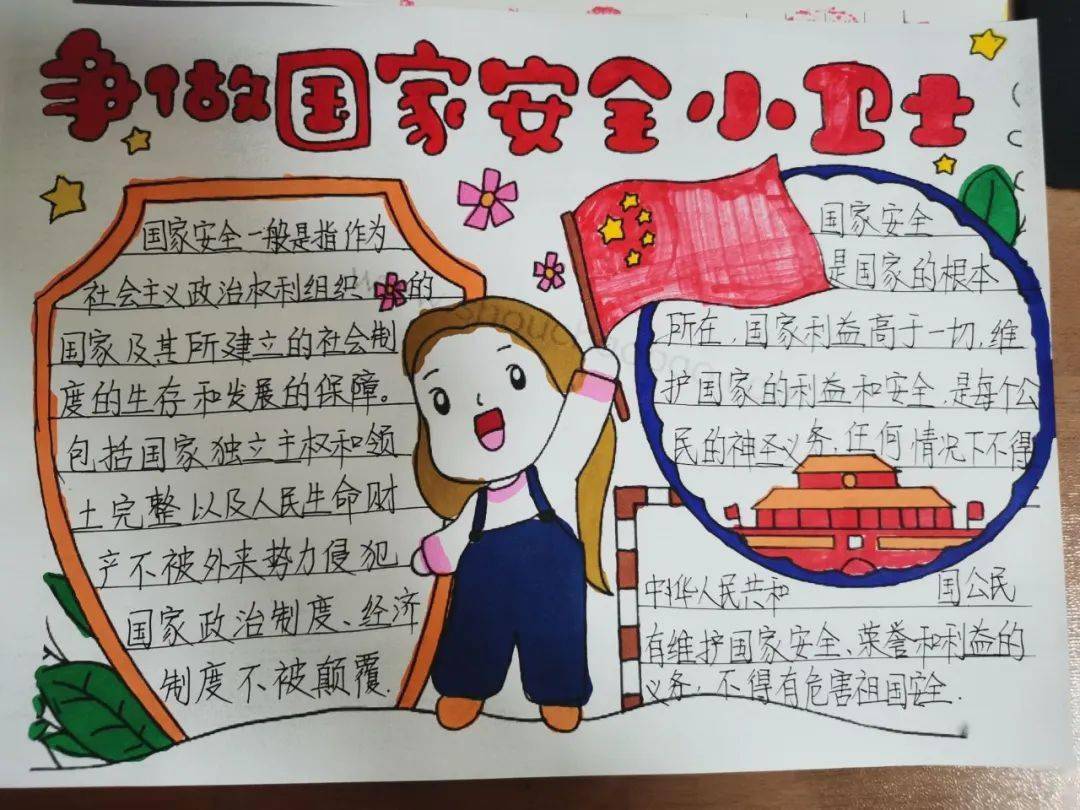 争做国家安全小卫士
国家安全一般是指作为
社会主义政治权利组织的
国家及其所建立的社会制
度的生存和发展的保障。
包括国家独立主权和领
土完整以及人民生命财
产不被外来势力侵犯
国家政治制度、经济
制度不被颠覆.
国家安全
是国家的根本
所在,国家利益高于一切,维
护国家的利益和安全,是每个公
民的神圣义务,任何情况下不得
中华人民共和国公民
有维护国家安全、荣誉和利益的
义务;不得有危害祖国安全.